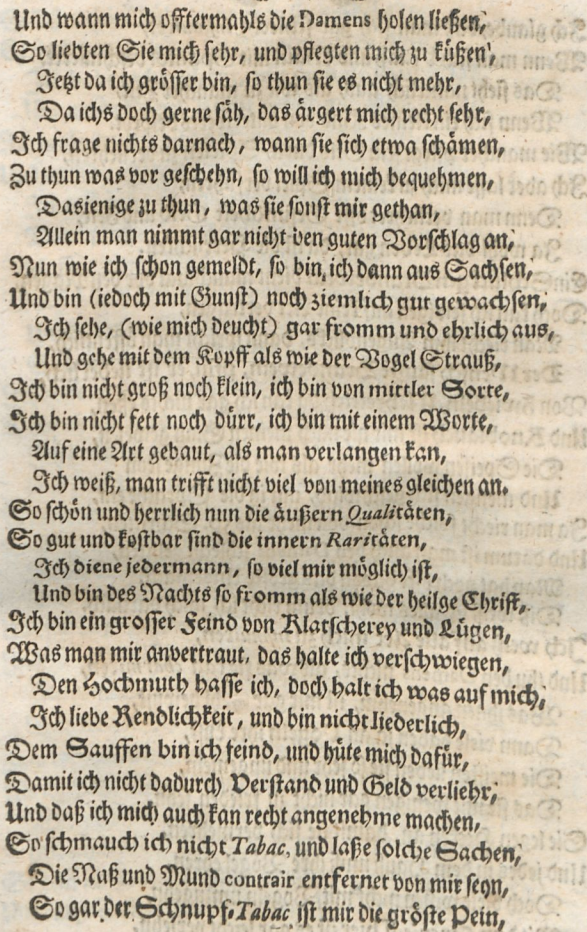 Und wann mich offtermahls die Damens holen ließen,
So liebten Sie mich sehr, und pflegten mich zu küßen,
Jetzt da ich grösser bin, so thun sie es nicht mehr,
Da ichs doch gerne säh, das ärgert mich recht sehr,
Ich frage nichts darnach, wann sie sich etwa schämen,
Zu thun was vor geschehn, so will ich mich bequehmen,
Dasienige zu thun, was sie sonst mir gethan,
Allein man nimmt gar nicht den guten Vorschlag an,
Nun wie ich schon gemeldt, so bin ich dann aus Sachsen,
Und bin (iedoch mit Gunst) noch ziemlich gut gewachsen,
Ich sehe, (wie mich deucht) gar fromm und ehrlich aus,
Und gehe mit dem Kopff als wie der Vogel Strauß,
Ich bin nicht groß noch klein, ich bin von mittler Sorte,
Ich bin nicht fett noch dürr, ich bin mit einem Worte,
Auf eine Art gebaut, als man verlangen kan,
Ich weiß, man trifft nicht viel von meines gleichen an.
So schön und herrlich nun die äußern Qualitäten,
So gut und kostbar sind die innern Raritäten,
Ich diene jedermann, so viel mir möglich ist,
Und bin des Nachts so fromm als wie der heilge Christ,
Ich bin ein grosser Feind von Klatscherey und Lügen,
Was man mir anvertraut, das halte ich verschwiegen,
Den Hochmuth hasse ich, doch halt ich was auf mich,
Ich liebe Rendlichkeit, und bin nicht liederlich,
Dem Sauffen bin ich feind, und hüte mich dafür,
Damit ich nicht dadurch Verstand und Geld verliehr,
Und daß ich mich auch kan recht angenehme machen,
So schmauch ich nicht Tabac, und laße solche Sachen,
Die Naß und Mund contrair entfernet von mir seyn,
So gar der Schnupf-Tabac ist mir die gröste Pein,